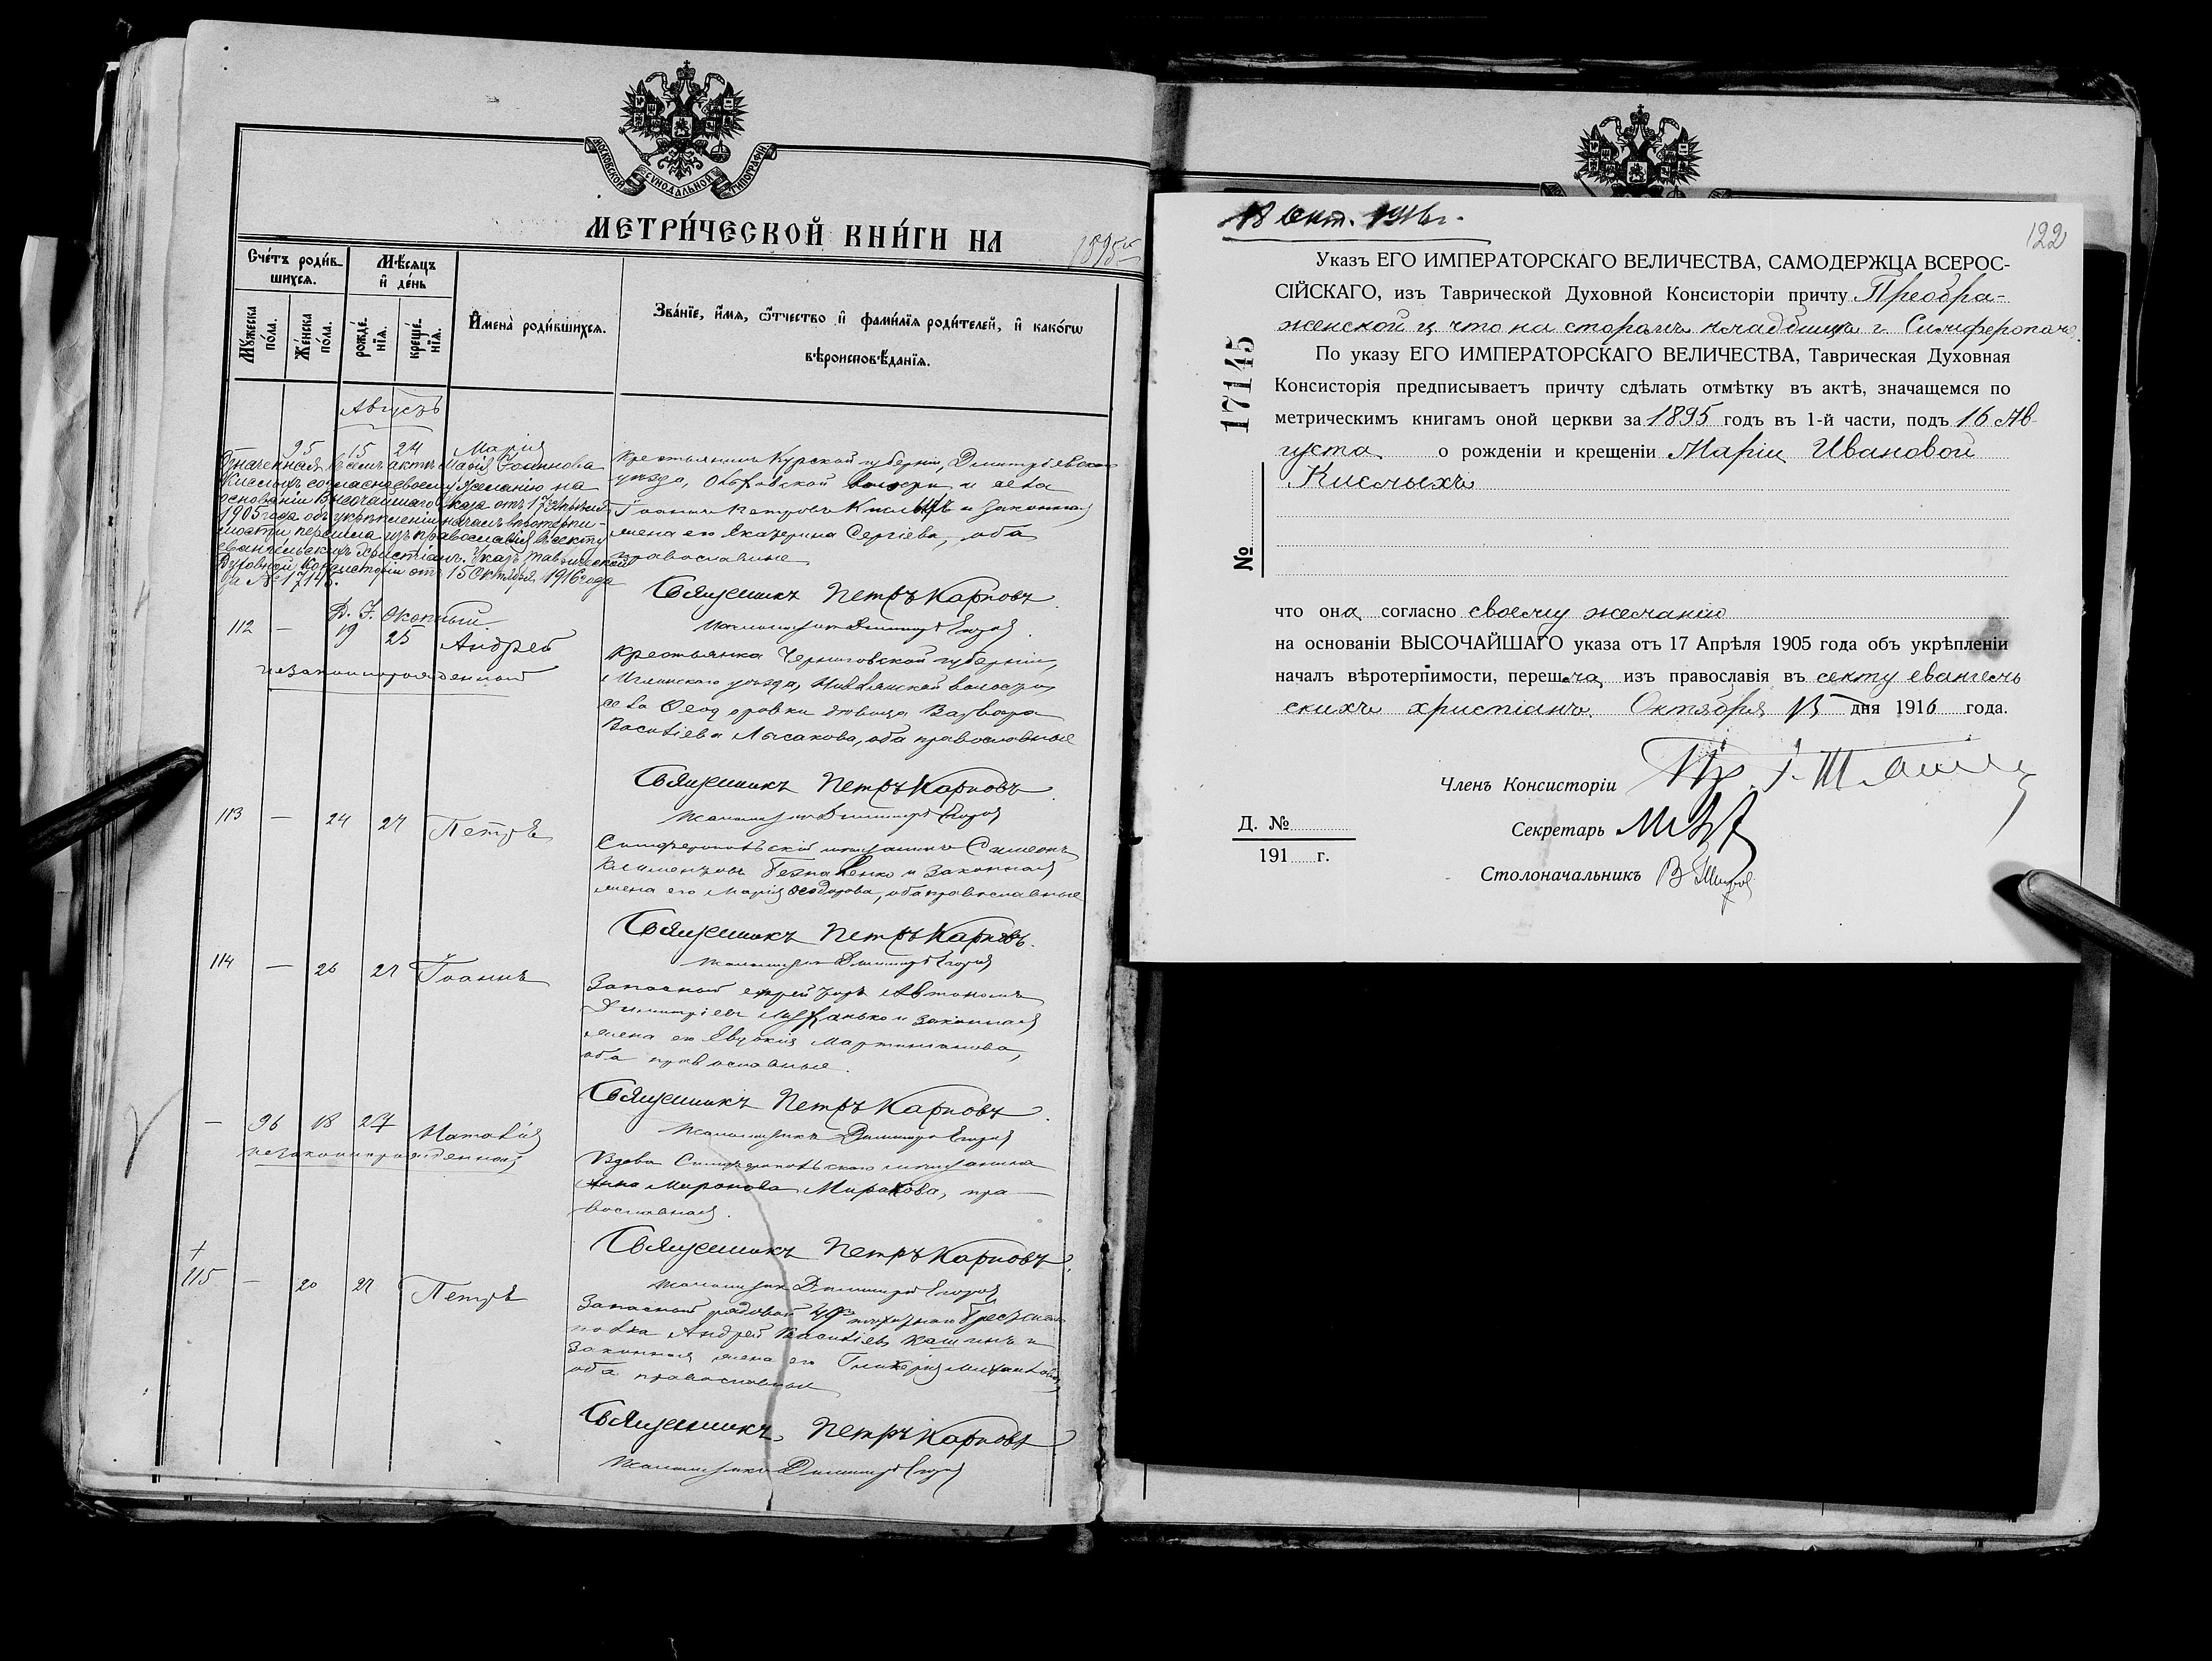 МОСКОВСКОЙ СѴНОДАЛЬНОЙ ТИПОГРАФІИ
МЕТРИ́ЧЕСКОЙ КНИ́ГИ НА 1895
Сче́тъ роди́в-
шихся.
Му́жеска по́ла.
Же́нска по́ла.
Мѣ́сяцъ и҆ де́нь
рожде́нїѧ.
креще́нїѧ.
И҆мена̀ роди́вшихсѧ.
Зва́нїе, и҆́мѧ, ѻ҆́тчество и҆ фами́лїѧ роди́телей, и҆ како́гѡ
вѣроисповѣ́данїѧ.
Августъ
95 15 24 Марія
Означенная въ семъ актѣ Марія Іоаннова
Кислыхъ согласно своему желанію на
основаніи Высочайшаго Указа отъ 17 Апрѣля
1905 года объ укрѣпленіи началъ вѣротерпи-
мости перешла изъ православія въ секту
евангельскихъ христіанъ. Указъ Таврической
Духовной Консисторіи отъ 15 Октября 1916 года
за № 17145.
Крестьянинъ Курской губерніи, Дмитріевскаго
уѣзда, волости и села
Іоаннъ Петровъ Кислыхъ и законная
жена его Екатерина Сергіева, оба
православные
Священникъ Петръ Карповъ
Псаломщикъ Димитрій
112 — 19 25 Андрей
незаконнорожденный
Крестьянка Черниговской губерніи,
Мглинскаго уѣзда, волости,
села Ѳеодоровки дѣвица Варвара
Василіева Лысакова, оба православные
Священникъ Петръ Карповъ
Псаломщикъ Димитрій
113 — 24 27 Петръ
Симферопольскій мѣщанинъ Симеонъ
Климентовъ и законная
жена его Марія Ѳеодорова, оба православные
Священникъ Петръ Карповъ.
Псаломщикъ Димитрій
114 — 26 27 Іоаннъ
Запасный ефрейторъ Автономъ
Димитріевъ и законная
жена его Евдокія Мартиніанова,
оба православные.
Священникъ Петръ Карповъ.
Псаломщикъ Димитрій
— 96 18 27 Наталія
незаконнорожденная
Вдова Симферопольскаго мѣщанина
Анна Миронова, пра-
вославная.
Священникъ Петръ Карповъ.
Псаломщикъ Димитрій
115 — 20 27 Петръ
Запасный рядовой пѣхотнаго Брестскаго
полка Андрей Василіевъ Кашинъ и
законная жена его Гликерія Михаилова,
оба православные
Священникъ Петръ Карповъ
Псаломщикъ Димитрій
18 Окт. 1916 г.
122
Указъ ЕГО ИМПЕРАТОРСКАГО ВЕЛИЧЕСТВА, САМОДЕРЖЦА ВСЕРОС-
СІЙСКАГО, изъ Таврической Духовной Консисторіи причту Преобра-
женской ц. что на старомъ кладбищѣ г. Симферополя.
По указу ЕГО ИМПЕРАТОРСКАГО ВЕЛИЧЕСТВА, Таврическая Духовная
Консисторія предписываетъ причту сдѣлать отмѣтку въ актѣ, значащемся по
метрическимъ книгамъ оной церкви за 1895 годъ въ 1-й части, подъ 16 Ав-
густа о рожденіи и крещеніи Маріи Ивановой
Кислыхъ
№ 17145
что она согласно своему желанію
на основаніи ВЫСОЧАЙШАГО указа отъ 17 Апрѣля 1905 года объ укрѣпленіи
началъ вѣротерпимости, перешла изъ православія въ секту евангель
скихъ христіанъ. Октября 15 дня 1916 года.
Членъ Консисторіи
Д. №
Секретарь
191 г.
Столоначальникъ